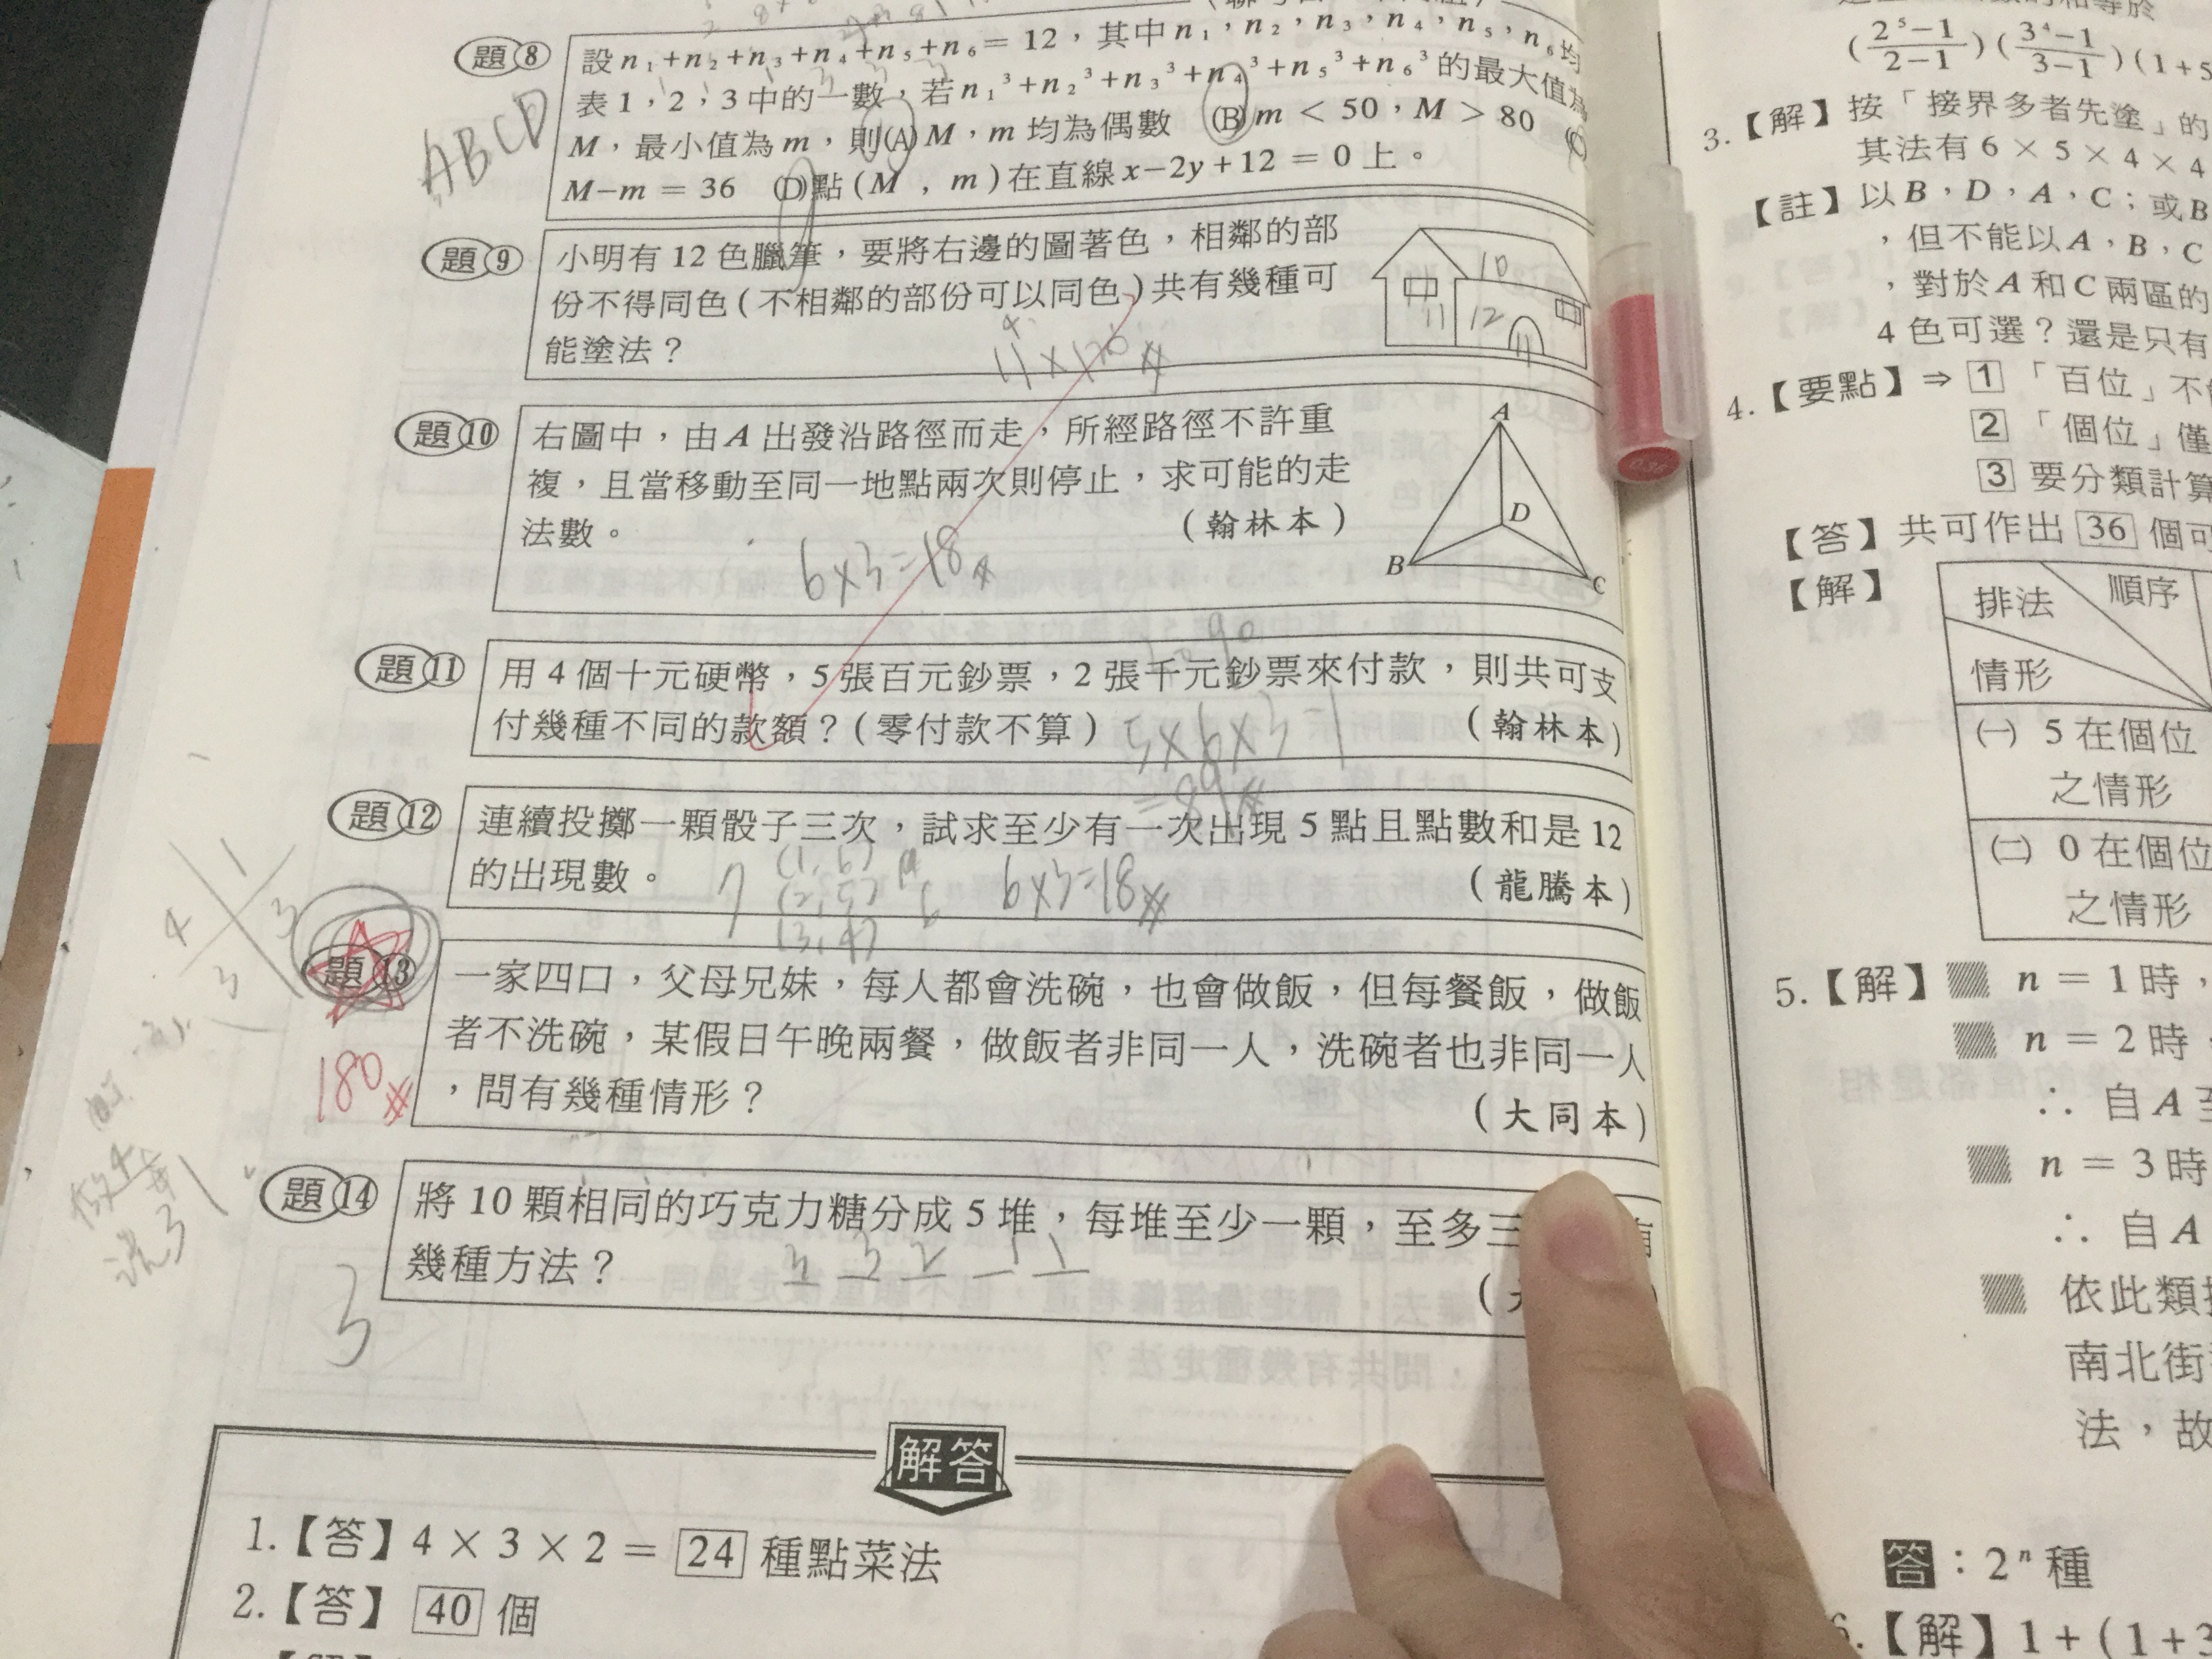 題⑧ 設n₁+n₂+n₃+n₄+n₅+n₆=12，其中n₁，n₂，n₃，n₄，n₅，n₆均
表1，2，3中的一數，若n₁³+n₂³+n₃³+n₄³+n₅³+n₆³的最大值為
M，最小值為m，則(A)M，m均為偶數 (B)m＜50，M＞80 (C)
M−m=36 (D)點(M，m)在直線x−2y+12=0上。
ABCD
題⑨ 小明有12色臘筆，要將右邊的圖著色，相鄰的部
份不得同色(不相鄰的部份可以同色)共有幾種可
能塗法？
10
11 12 11
題⑩ 右圖中，由A出發沿路徑而走，所經路徑不許重
複，且當移動至同一地點兩次則停止，求可能的走
法數。 (翰林本)
6×3=18
A
D
B
C
題⑪ 用4個十元硬幣，5張百元鈔票，2張千元鈔票來付款，則共可支
付幾種不同的款額？(零付款不算) (翰林本)
5×6×3-1
=89
題⑫ 連續投擲一顆骰子三次，試求至少有一次出現5點且點數和是12
的出現數。 (龍騰本)
7 (1,6)
(2,5)
(3,4)
6
6×3=18
題⑬ 一家四口，父母兄妹，每人都會洗碗，也會做飯，但每餐飯，做飯
者不洗碗，某假日午晚兩餐，做飯者非同一人，洗碗者也非同一人
，問有幾種情形？ (大同本)
1
4 3
3
180
題⑭ 將10顆相同的巧克力糖分成5堆，每堆至少一顆，至多三
幾種方法？
3 3 2 1 1
3
解答
1.【答】4×3×2=24種點菜法
2.【答】40個
(2⁵−1/2−1)(3⁴−1/3−1)(1+5
3.【解】按「接界多者先塗」的
其法有6×5×4×4
【註】以B，D，A，C；或B
，但不能以A，B，C
，對於A和C兩區的
4色可選？還是只有
4.【要點】⇒1「百位」不
2「個位」僅
3要分類計算
【答】共可作出36個
【解】
排法 順序
情形
㈠ 5在個位
之情形
㈡ 0在個位
之情形
5.【解】n=1時，
n=2時
∴自A至
n=3時
∴自A
依此類
南北街
法，故
答：2ⁿ種
6.【解】1+(1+3